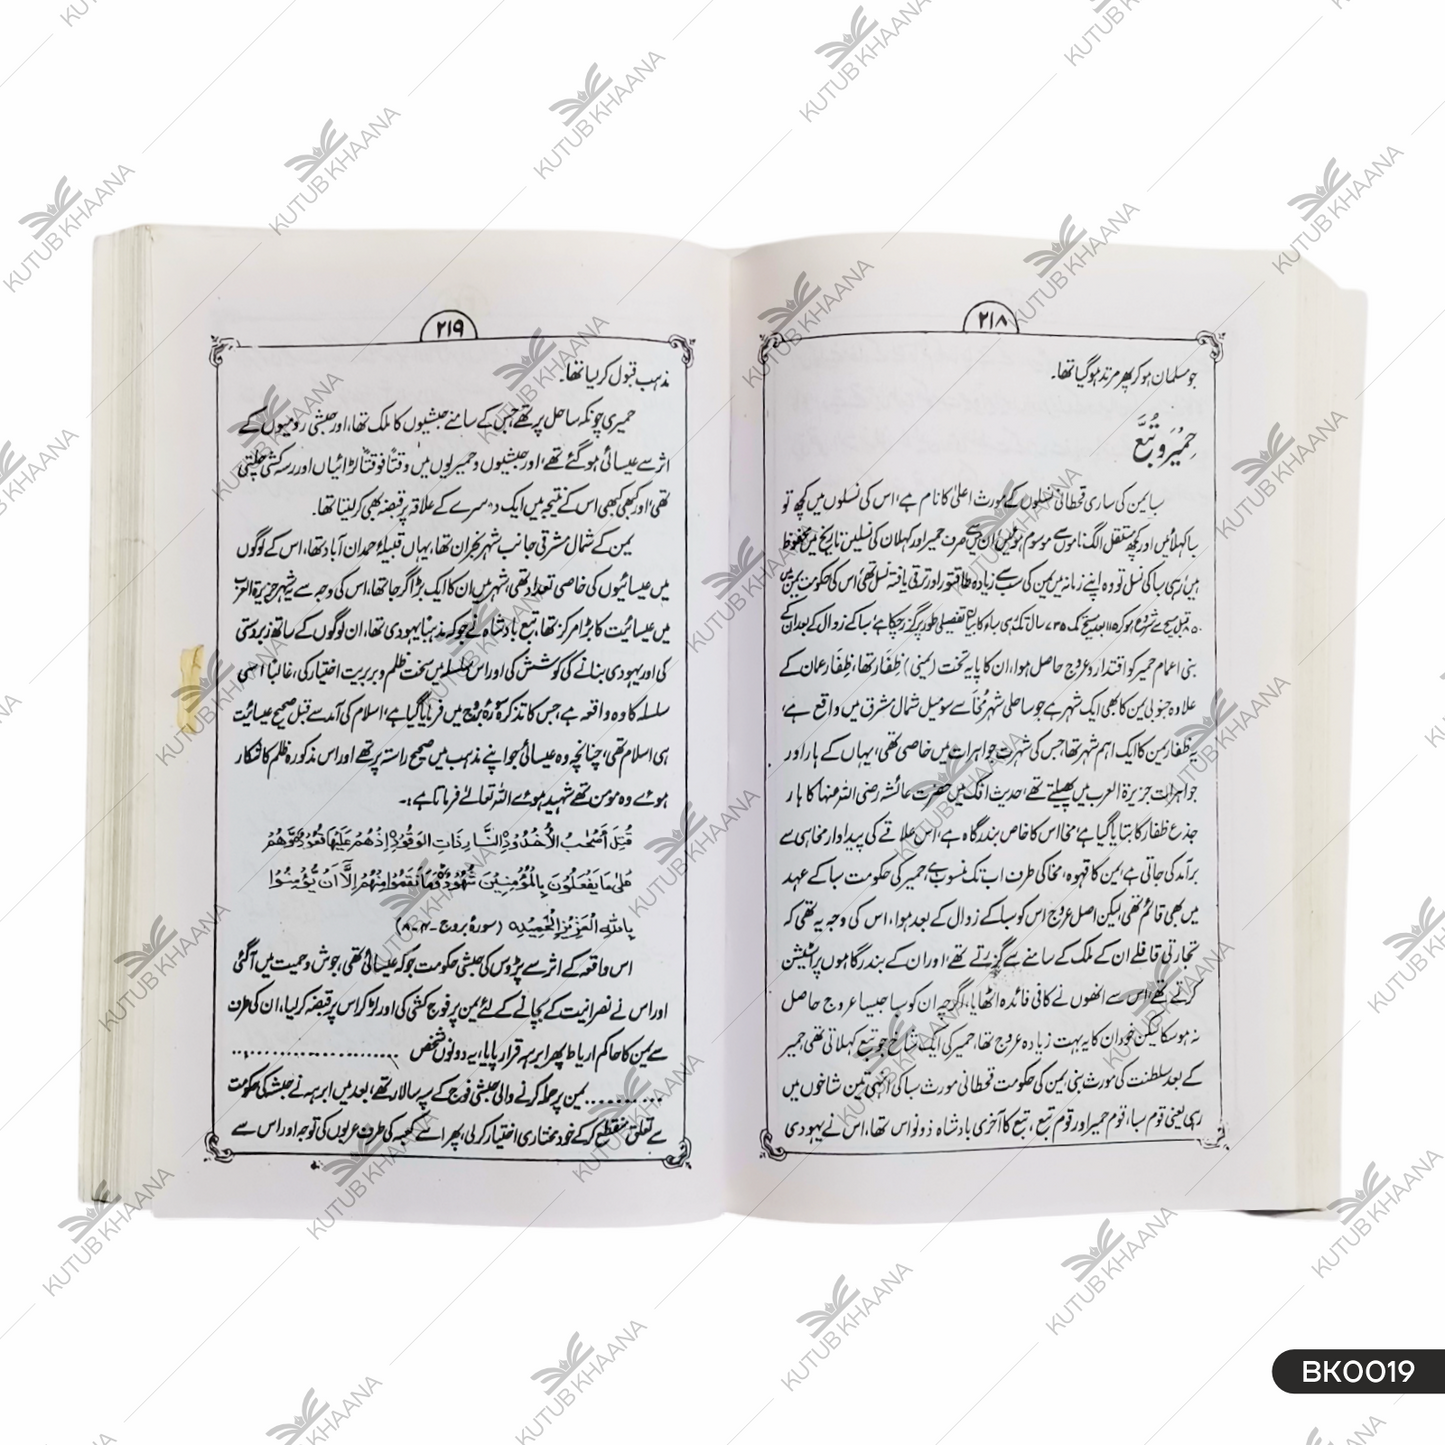 ۲۱۸
جو مسلمان ہو کر پھر مرتد ہو گیا تھا۔
حِمْیَر و تُبَّع
سبا یمن کی ساری قحطانی نسلوں کے مورث اعلیٰ کا نام ہے، اس کی نسلوں میں کچھ تو
سبا کہلائیں اور کچھ مستقل الگ ناموں سے موسوم ہوئیں ان میں سے صرف حمیر اور کہلان کی نسلیں تاریخ میں محفوظ
ہیں، رہی سبا کی نسل تو وہ اپنے زمانہ میں یمن کی سب سے زیادہ طاقتور اور ترقی یافتہ نسل تھی، اس کی حکومت یمن میں
قبل مسیح سے شروع ہو کر ۱۱۵ بعد مسیح تک ۷۳۵ سال تک رہی سباء کا بیان تفصیلی طور پر گزر چکا ہے، سبا کے زوال کے بعد ان کے
بنی اعمام حمیر کو اقتدار و عروج حاصل ہوا، ان کا پایہ تخت (یمنی) ظفار تھا، ظفار عمان کے
علاوہ جنوبی یمن کا بھی ایک شہر ہے جو ساحلی شہر مُخَا سے سو میل شمال مشرق میں واقع ہے،
یہ ظفار یمن کا ایک اہم شہر تھا جس کی شہرت جواہرات میں خاصی تھی، یہاں کے ہار اور
جواہرات جزیرۃ العرب میں پھیلتے تھے، حدیث افک میں حضرت عائشہ رضی اللہ عنہا کا ہار
جذع ظفار کا بتایا گیا ہے، مخا اس کا خاص بندرگاہ ہے، اس علاقے کی پیداوار مخا ہی سے
برآمد کی جاتی ہے، یمن کا قہوہ، مخا کی طرف اب تک منسوب ہے، حمیر کی حکومت سبا کے عہد
میں بھی قائم تھی لیکن اصل عروج اس کو سبا کے زوال کے بعد ہوا، اس کی وجہ یہ تھی کہ
تجارتی قافلے ان کے ملک کے سامنے سے گزرتے تھے، اور ان کے بندرگاہوں پر اسٹیشن
کرتے تھے، اس سے انھوں نے کافی فائدہ اٹھایا، اگرچہ ان کو سبا جیسا عروج حاصل
نہ ہو سکا لیکن خود ان کا یہ بہت زیادہ عروج تھا، حمیر کی ایک شاخ جو تبع کہلاتی تھی، حمیر
کے بعد سلطنت کی مورث بنی، یمن کی حکومت قحطانی مورث سبا کی انہی تین شاخوں میں
رہی یعنی قوم سبا، قوم حمیر اور قوم تبع، تبع کا آخری بادشاہ ذو نواس تھا، اس نے یہودی
۲۱۹
مذہب قبول کر لیا تھا۔
حمیری چونکہ ساحل پر تھے جس کے سامنے حبشیوں کا ملک تھا، اور حبشی رومیوں کے
اثر سے عیسائی ہو گئے تھے، اور حبشیوں و حمیریوں میں وقتاً فوقتاً لڑائیاں اور رسہ کشی چلتی
تھی، اور کبھی کبھی اس کے نتیجہ میں ایک دوسرے کے علاقہ پر قبضہ بھی کر لیتا تھا۔
یمن کے شمال مشرقی جانب شہر نجران تھا، یہاں قبیلۂ ہمدان آباد تھا، اس کے لوگوں
میں عیسائیوں کی خاصی تعداد تھی، شہر میں ان کا ایک بڑا گرجا تھا، اس کی وجہ سے یہ شہر جزیرۃ العرب
میں عیسائیت کا بڑا مرکز تھا، تبع بادشاہ نے جو کہ مذہباً یہودی تھا، ان لوگوں کے ساتھ زبردستی
کی اور یہودی بنانے کی کوشش کی اور اس سلسلہ میں سخت ظلم و بربریت اختیار کی، غالباً اسی
سلسلہ کا وہ واقعہ ہے، جس کا تذکرہ سورۂ بروج میں فرمایا گیا ہے، اسلام کی آمد سے قبل صحیح عیسائیت
ہی اسلام تھی، چنانچہ وہ عیسائی جو اپنے مذہب میں صحیح راستہ پر تھے اور اس مذکورہ ظلم کا شکار
ہوئے وہ مومن تھے شہید ہوئے اللہ تعالیٰ فرماتا ہے:۔
قُتِلَ اَصْحٰبُ الْاُخْدُوْدِ النَّارِ ذَاتِ الْوَقُوْدِ اِذْ هُمْ عَلَيْهَا قُعُوْدٌ وَّهُمْ
عَلٰى مَا يَفْعَلُوْنَ بِالْمُؤْمِنِيْنَ شُهُوْدٌ وَمَا نَقَمُوْا مِنْهُمْ اِلَّا اَنْ يُّؤْمِنُوْا
بِاللّٰهِ الْعَزِيْزِ الْحَمِيْدِ (سورۂ بروج۔۴۔۸)
اس واقعہ کے اثر سے پڑوس کی حبشی حکومت جو کہ عیسائی تھی، جوش و حمیت میں آگئی
اور اس نے نصرانیت کے بچانے کے لئے یمن پر فوج کشی کی اور لڑ کر اس پر قبضہ کر لیا، ان کی طرف
سے یمن کا حاکم ارباط پھر ابرہہ قرار پایا، یہ دونوں شخص ........................
........... یمن پر حملہ کرنے والی حبشی فوج کے سپہ سالار تھے، بعد میں ابرہہ نے حبشہ کی حکومت
سے تعلق منقطع کر کے خود مختاری اختیار کر لی، پھر اسے کعبہ کی طرف عربوں کی توجہ اور اس سے
KUTUB KHAANA
BK0019